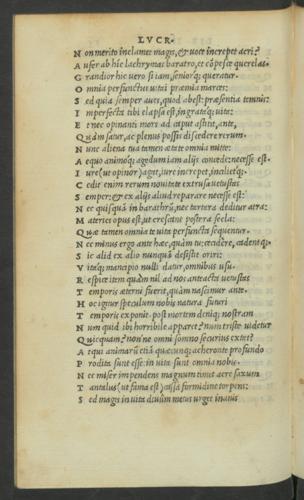 LVCR.
Non merito inclamet magis, et uoce increpet acri?
Aufer ab hic lachrymas baratro, et cõpesce querelas.
Grandior hic uero si iam, seniorq; queratur.
Omnia perfunctus uitai præmia marces:
Sed quia semper aues, quod abest: præsentia temnis:
Imperfecta tibi elapsa est, ingrataq; uita:
Et nec opinanti mors ad caput astitit, ante,
Quàm satur, ac plenus possis discedere rerum.
Nunc aliena tua tamen ætate omnia mitte:
Aequo animoq; agedum iam aliis concede: necesse est.
Iure (ut opinor) agat, iure increpet, incilietq;:
Cedit enim rerum nouitate extrusa uetustas
Semper: et ex aliis aliud reparare necesse est:
Nec quisquã in barathrũ, nec tartara deditur atra:
Materies opus est, ut crescant postera secla:
Quæ tamen omnia te uita perfuncta sequentur.
Nec minus ergo ante hæc, quàm tu, cecidere, cadentq;:
Sic alid ex alio nunquã desistet oriri:
Vitaq; mancipio nulli datur, omnibus usu.
Respice item quàm nil ad nos anteacta uetustas
Temporis æterni fuerit, quàm nascimur ante.
Hoc igitur speculum nobis natura futuri
Temporis exponit post mortem deniq; nostram
Nunquid ibi horribile apparet? num triste uidetur
Quicquam? non'ne omni somno securius extat?
Atqui animarũ etiã quæcunq; acheronte profundo
Prodita sunt esse: in uita sunt omnia nobis.
Nec miser impendens magnum timet aere saxum
Tantalus (ut fama est) cassa formidine torpens:
Sed magis in uita diuûm metus urget inanis